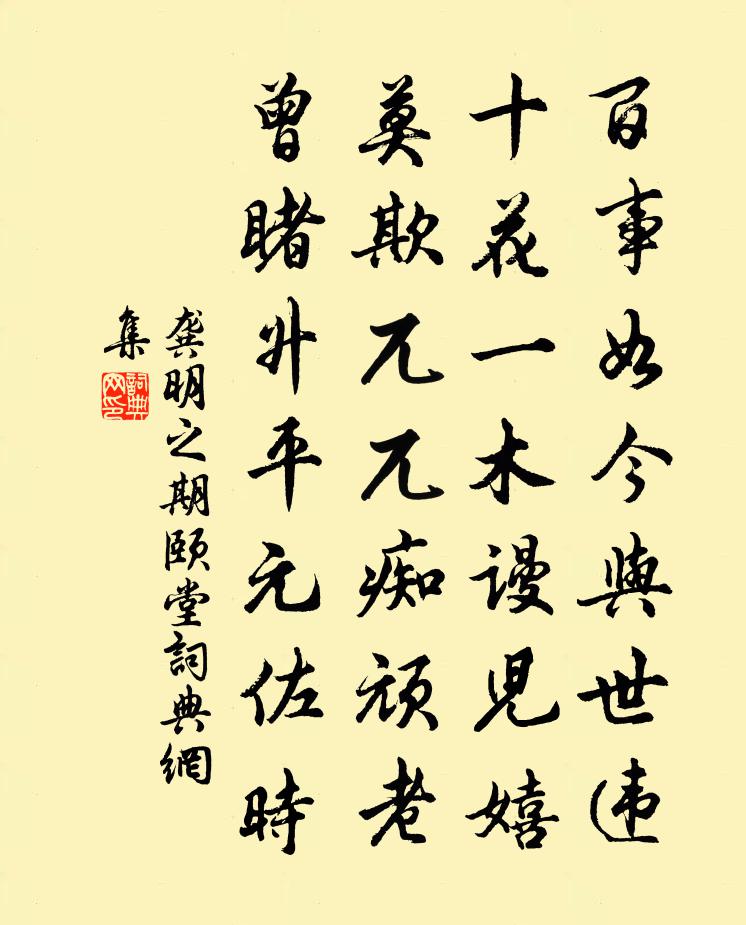 百事如今與世違
十花一木謾児嬉
莫欺兀兀痴頑老
曾睹升平元佐時
龔明之期頤堂詞典網
集
詞典
网印